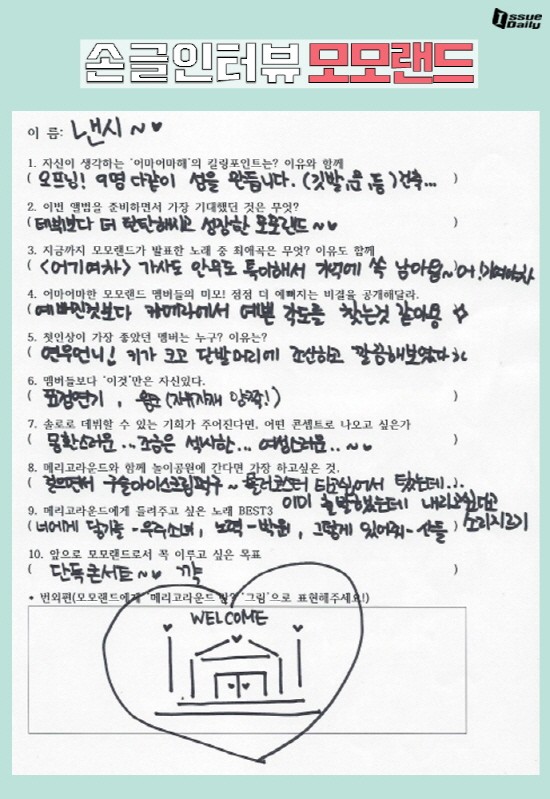 Issue
Daily
손글인터뷰 모모랜드
이 름: 낸시~♥
1. 자신이 생각하는 '어마어마해'의 킬링포인트는? 이유와 함께
( 오프닝! 9명 다같이 성을 만듭니다. (깃발, 문, 등) 건축... )
2. 이번 앨범을 준비하면서 가장 기대했던 것은 무엇?
( 데뷔보다 더 탄탄해지고 성장한 모모랜드~♥ )
3. 지금까지 모모랜드가 발표한 노래 중 최애곡은 무엇? 이유도 함께
( <어기여차> 가사도 안무도 특이해서 기억에 쏙 남아용~ 어!기여차차 )
4. 어마어마한 모모랜드 멤버들의 미모! 점점 더 예뻐지는 비결을 공개해달라.
( 예뻐진것보다 카메라에서 예쁜 각도를 찾는것 같아용 ☆ )
5. 첫인상이 가장 좋았던 멤버는 누구? 이유는?
( 연우언니! 키가 크고 단발머리에 조신하고 깔끔해보였다 )
6. 멤버들보다 '이것'만은 자신있다.
( 표정연기, 윙크 (자유자재 양쪽!) )
7. 솔로로 데뷔할 수 있는 기회가 주어진다면, 어떤 콘셉트로 나오고 싶은가
( 몽환스러운...조금은 섹시한... 여성스러운..~♥ )
8. 메리고라운드와 함께 놀이공원에 간다면 가장 하고싶은 것.
( 걸으면서 구슬아이스크림먹구~ 롤러코스터 타고싶어서 탔는데..
이미 출발했는데 내리고싶다고
소리지르기
9. 메리고라운드에게 들려주고 싶은 노래 BEST3
( 너에게 닿기를-우주소녀, 노력-박원, 그렇게 있어줘-산들
10. 앞으로 모모랜드로서 꼭 이루고 싶은 목표
( 단독콘서트~♥ 꺅 )
* 번외편(모모랜드에게 '메리고라운드'란? '그림'으로 표현해주세요!)
WELCOME